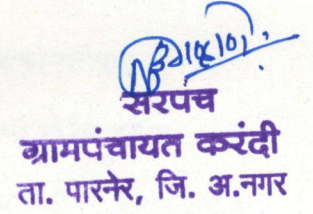 सरपंच
ग्रामपंचायत करंदी
ता. पारनेर, जि. अ.नगर